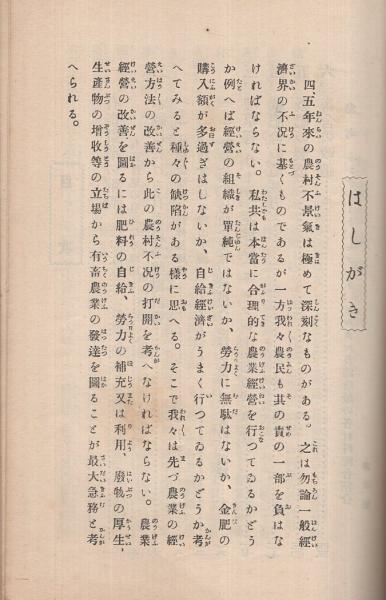 はしがき
四、五年來の農村不景氣は極めて深刻なものがある。之は勿論一般經
濟界の不況に基くものであるが一方我々農民も其の責の一部を負はな
ければならない。私共は本當に合理的な農業經營を行つてゐるかどう
か例へば經營の組織が單純ではないか、勞力に無駄はないか、金肥の
購入額が多過ぎはしないか、自給經濟がうまく行つてゐるかどうか考
へてみると種々の缺陷がある樣に思へる。そこで我々は先づ農業の經
營方法の改善から此の農村不況の打開を考へなければならない。農業
經營の改善を圖るには肥料の自給、勞力の補充又は利用、廢物の厚生、
生產物の增收等の立場から有畜農業の發達を圖ることが最大急務と考
へられる。